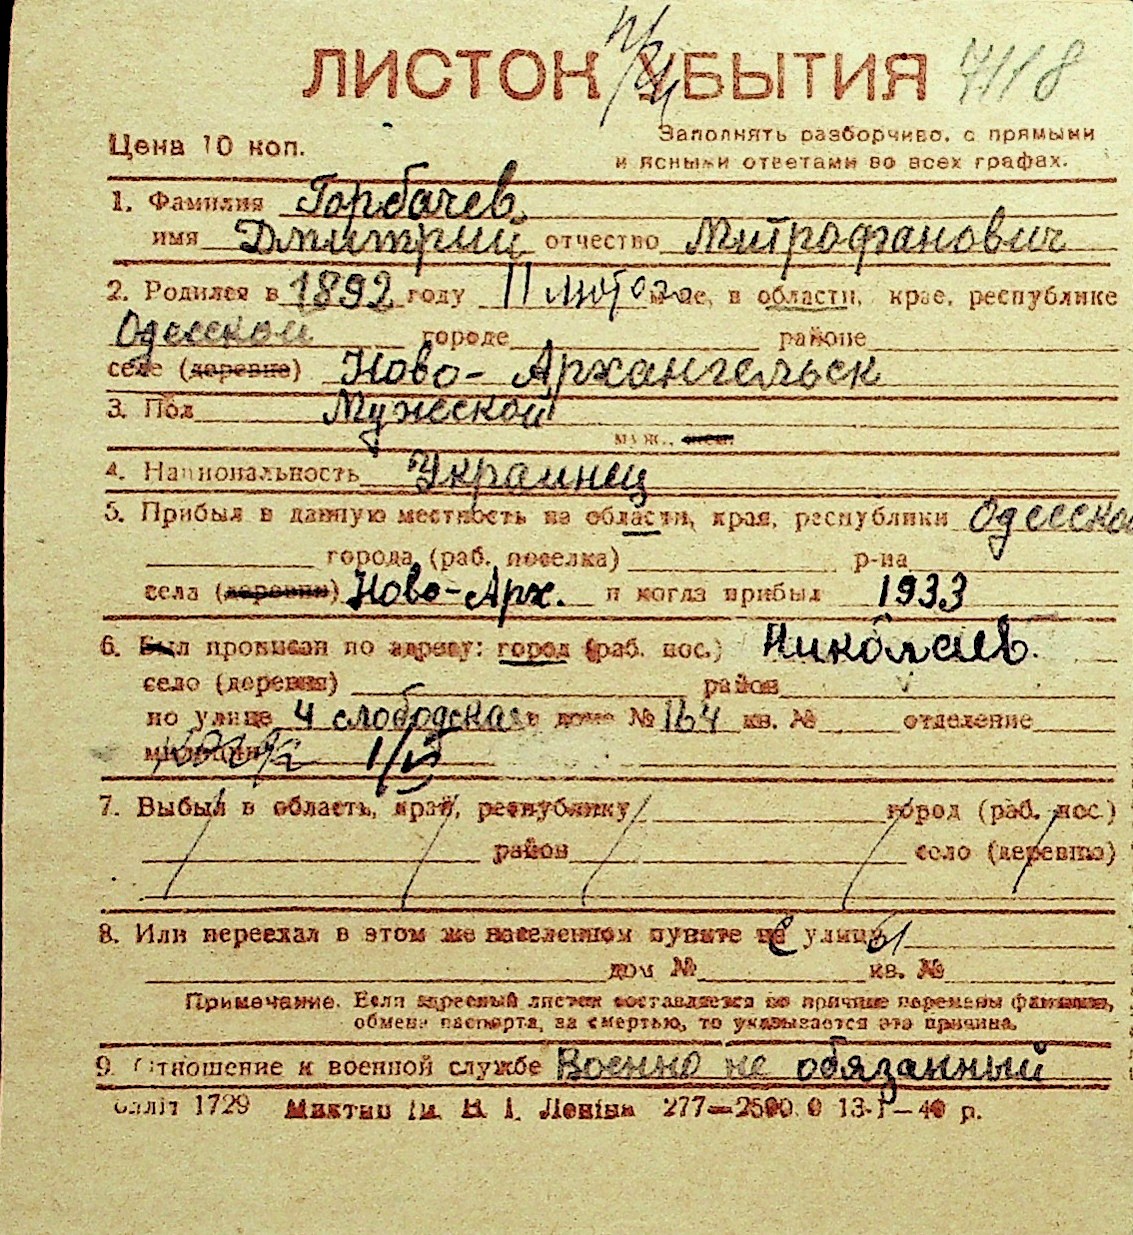 ЛИСТОК УБЫТИЯ 7118
Цена 10 коп.
Заполнять разборчиво, с прямыми
и ясными ответами во всех графах.
1. Фамилия Горбачев
имя Дмитрий отчество Митрофанович
2. Родился в 1892 году 11 лютого м-це, в области, крае, республике
Одесской городе районе
селе (деревне) Ново-Архангельск
3. Пол Мужеской
муж., жен.
4. Национальность Украинец
5. Прибыл в данную местность из области, края, республики Одесской
города (раб. поселка) р-на
села (деревни) Ново-Арх. и когда прибыл 1933
6. Был прописан по адресу: город (раб. пос.) Николаев.
село (деревня) район
по улице 4 слободская в доме № 164 кв. № отделение
милиции
7. Выбыл в область, край, республику город (раб. пос.)
район село (деревню)
8. Или переехал в этом же населенном пункте на улицу
дом № кв. №
Примечание. Если адресный листок составляется по причине перемены фамилии,
обмена паспорта, за смертью, то указывается эта причина.
9. Отношение к военной службе Военно не обязанный
Обліт 1729 Миктип ім. В. І. Леніна 277—2500.0 13-I—40 р.